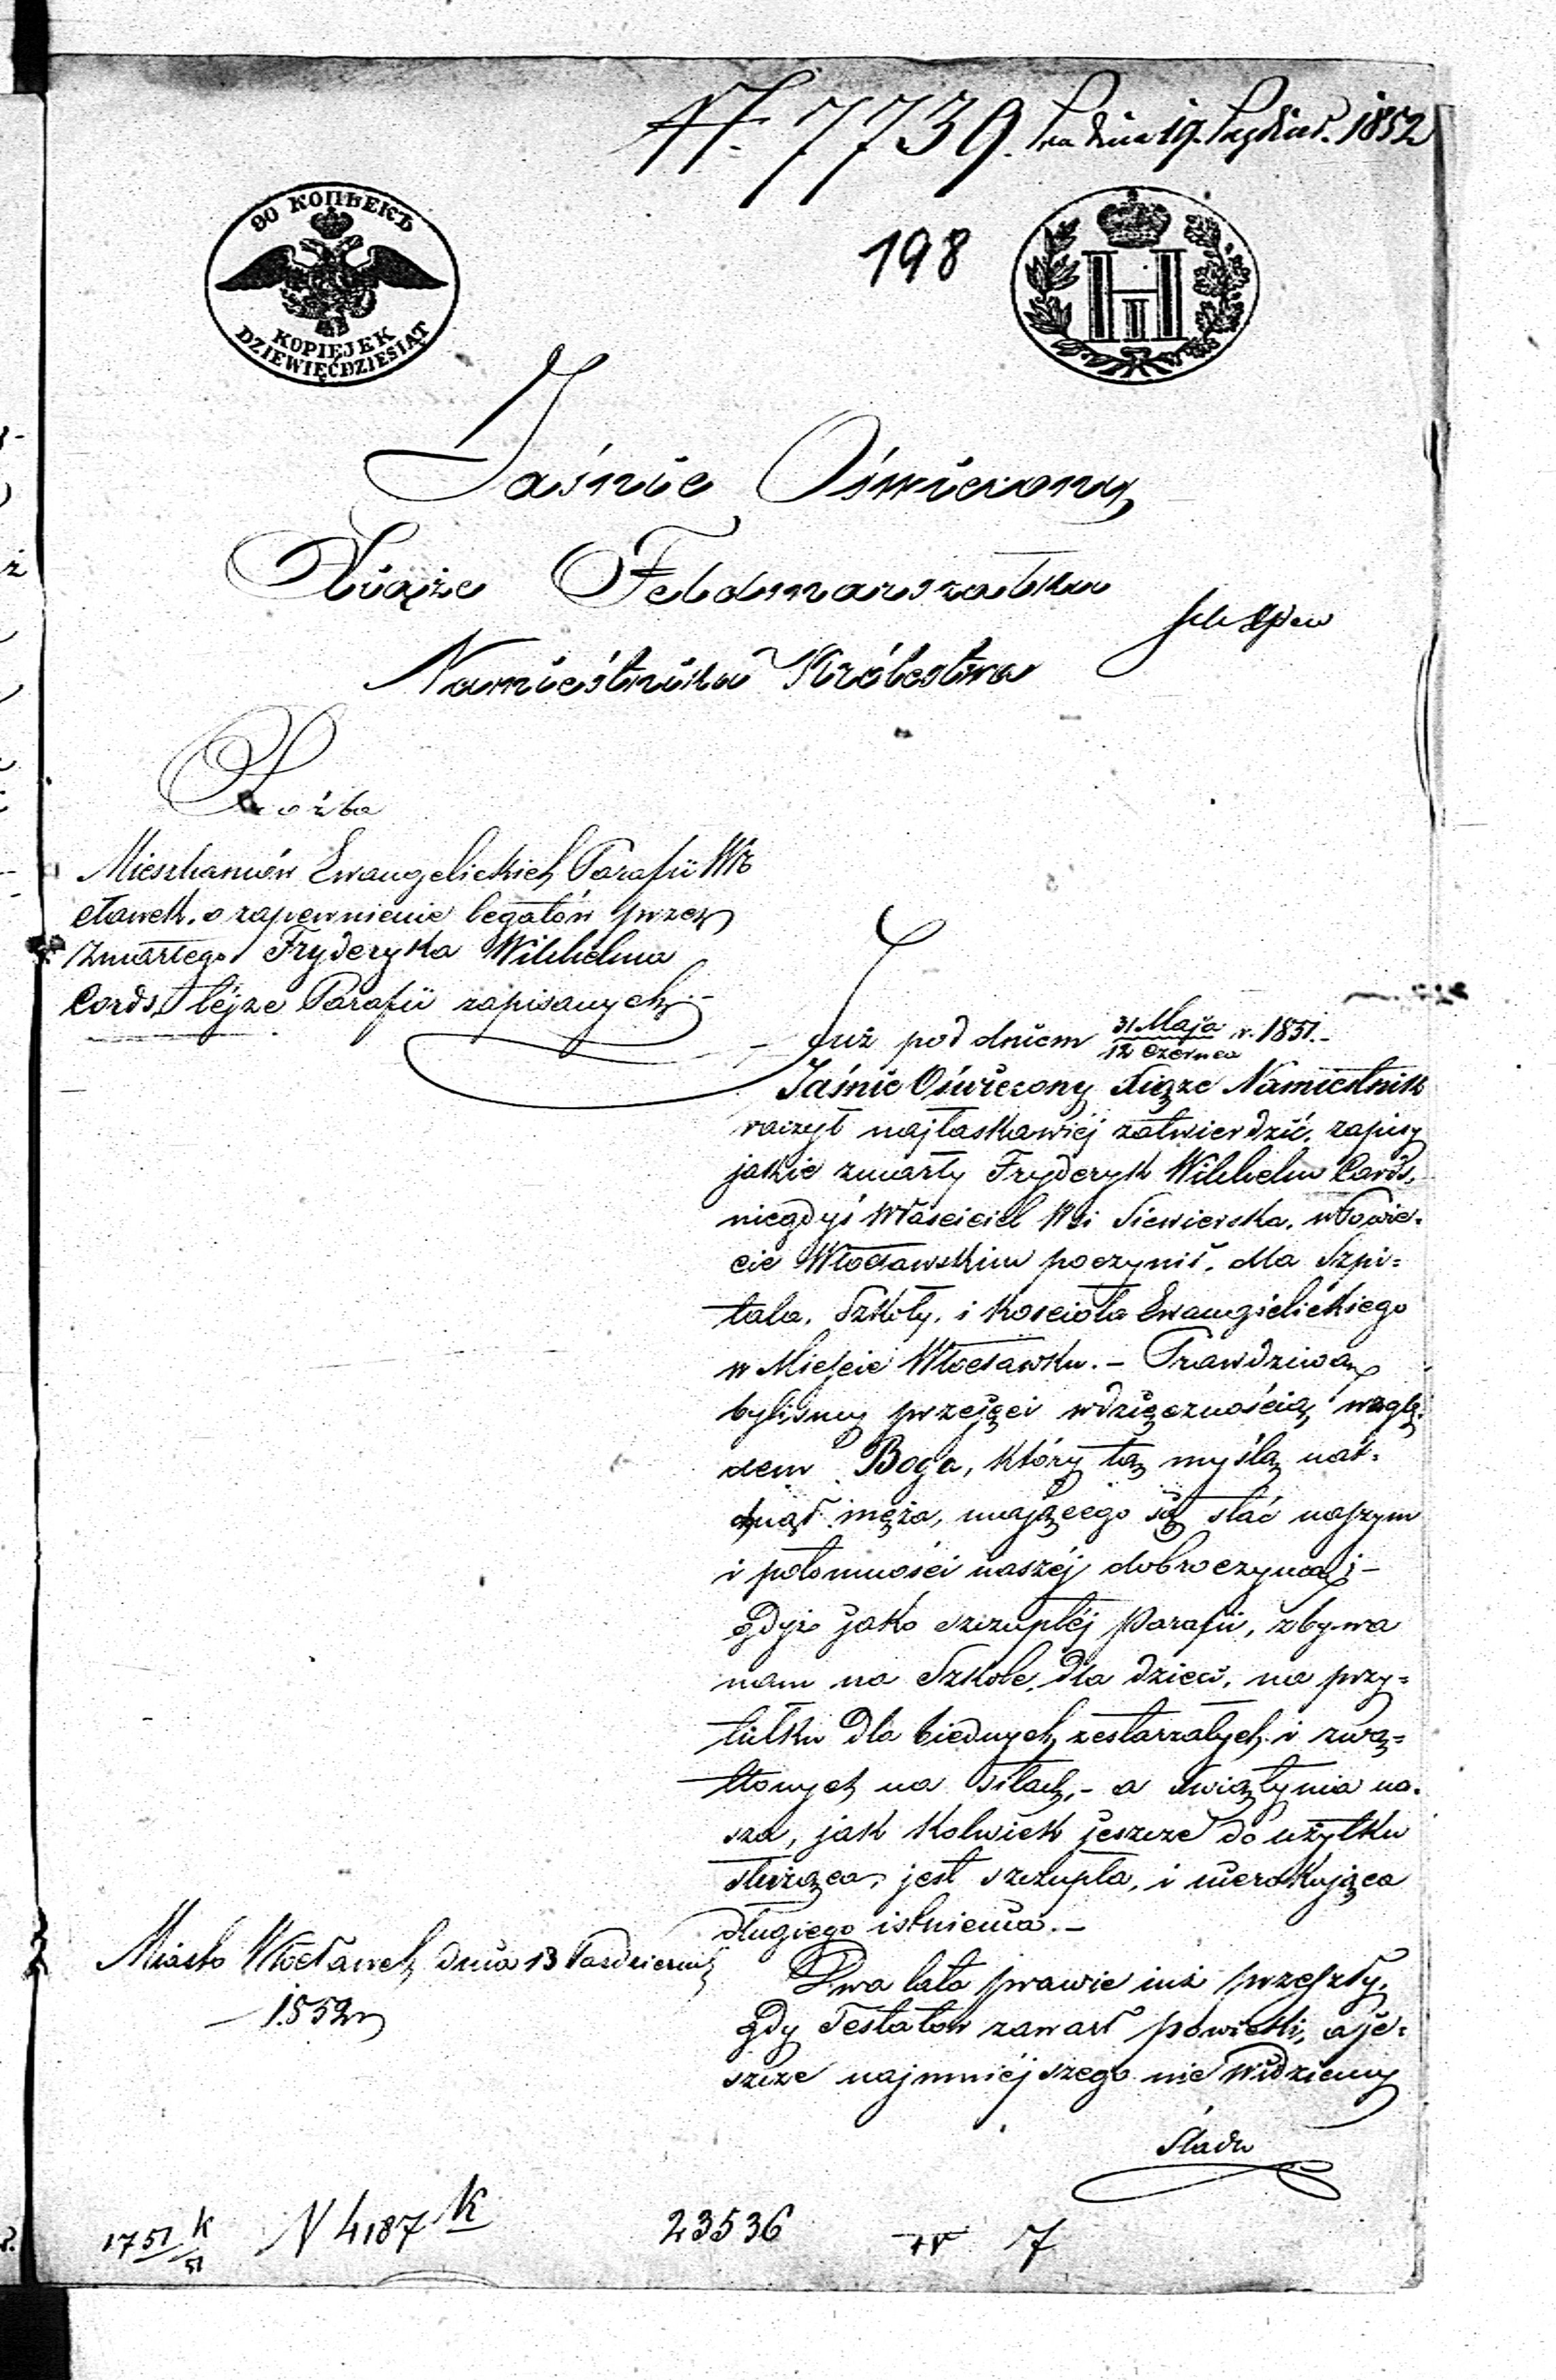 N 7739. 19. 1852
90 КОПѢЕКЪ
KOPIEJEK
DZIEWIĘĆDZIESIĄT
198
H I
Jaśnie Oświecony
Xiąże Feldmarszałku
Namiestniku Królestwa
Prośba
Mieszkanców Ewangelickich Parafii Wło
cławek. o zapewnienie legatów przez
zmarłego Fryderyka Wilhelma
Cords, téjże Parafii zapisanych.-
Już pod dniem 31 Maja / 12 Czerwca r. 1851.-
Jaśnie Oświecony Xiąże Namiestnik
raczył najłaskawiéj zatwierdzić, zapisy
jakie zmarły Fryderyk Wilhelm Cords,
niegdyś Właściciel Wsi Siewierska, w Powie-
cie Włocławskim poczynił, dla Szpi=
tala, Szkoły, i Kościoła Ewangielickiego
w Mieście Włocławku.- Prawdziwą
byliśmy przejęci wdzięcznością wzglę-
dem Boga, który tą myślą nat-
chnął męża, mającego się stać naszym
i potomności naszéj dobroczyńcą;-
gdyż jako szczupłéj Parafii, zbywa
nam na Szkole dla dzieci, na przy=
tułku dla biednych zestarzałych i zwą=
tlonych na siłach,- a świątynia na-
sza, jak kolwiek jeszcze do użytku
służąca, jest szczupła, i nierokująca
długiego istnienia.-
Miasto Włocławek dnia 13 Pazdziernik
1852 r
Dwa lata prawie już przeszły,
gdy Testator zawarł powieki, a je-
szcze najmniéjszego nie widziemy
śladu
1751 K / 51
N 4187 K
23536
7